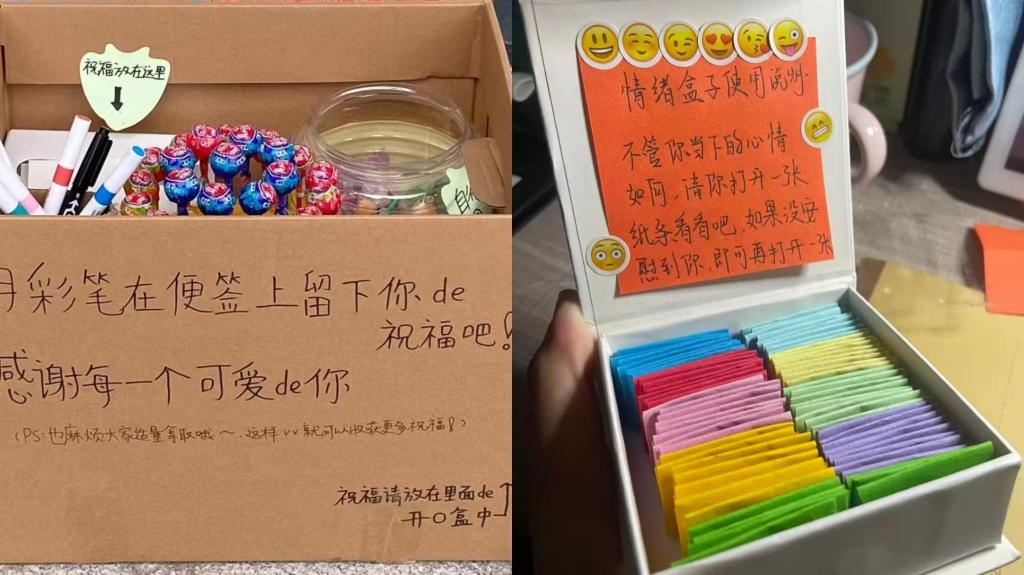 祝福放在这里
彩笔在便签上留下你de
祝福吧!
感谢每一个可爱de你
(PS:也麻烦大家适量拿取哦～,这样vv就可以收获更多祝福!)
祝福请放在里面de
开口盒中
情绪盒子使用说明:
不管你当下的心情
如何,请你打开一张
纸条看看吧,如果没安
慰到你,即可再打开一张